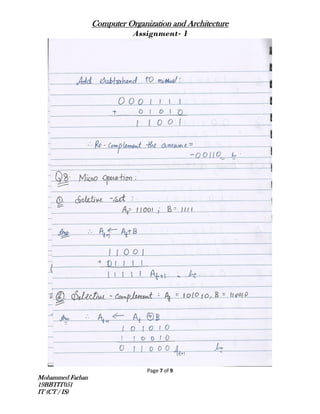 Computer Organization and Architecture
Assignment- 1
Add subtrahend TO minuend:
0 0 0 1 1 1 1
+ 0 1 0 1 0
1 1 0 0 1
∴ Re-complement the answer =
-00110
Q8 Micro operation:
① Selective -set :
A = 11001 ; B = 1111
Ans ∴ At+1 ← At+B
1 1 0 0 1
+ 0 1 1 1 1
1 1 1 1 1 At+1
② Selective - complement : At = 101010, B = 110010
Ans ∴ At+1 ← At ⊕ B
1 0 1 0 1 0
1 1 0 0 1 0
0 1 1 0 0 0 At+1
Page 7 of 9
Mohammed Farhan
19BBTIT051
IT (CT / IS)